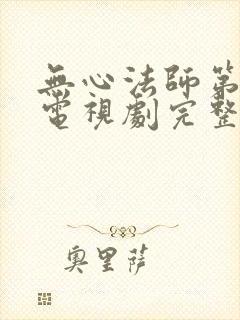 無心法師第
電視劇完整
奧里薩